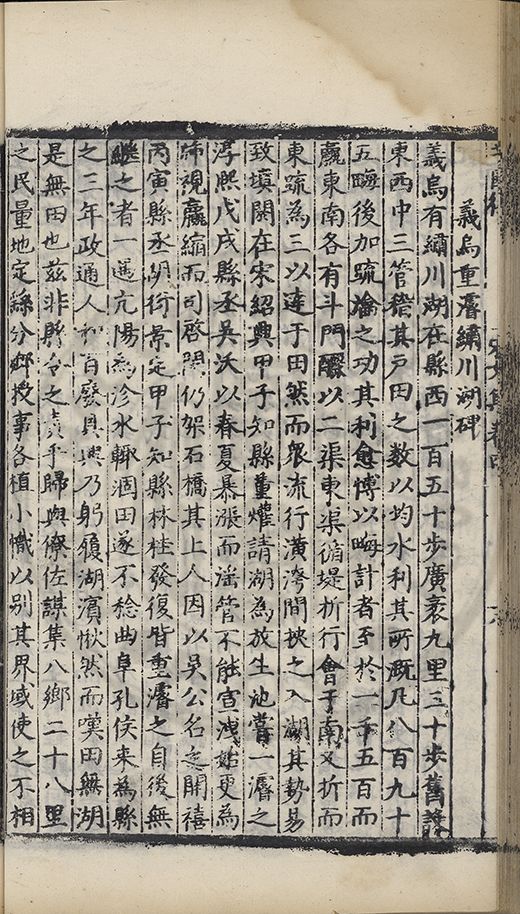 義烏重濬繡川湖碑
義烏有繡川湖在縣西一百五十步廣袤九里三十步舊設
東西中三管稽其戶田之數以均水利其所溉凡八百九十
五畮後加疏瀹之功其利愈博以畮計者至於一千五百而
羸東南各有斗門釃以二渠東渠循堤折行會于南又折而
東疏為三以達于田然而眾流行潢污間挾之入湖其勢易
致填閼在宋紹興甲子知縣董爟請湖為放生池嘗一濬之
淳熙戊戌縣丞吳沃以春夏暴漲而涵管不能宣洩始更為
㳍視羸縮而司啓閉仍架石橋其上人因以吳公名之開禧
丙寅縣丞胡衍景定甲子知縣林桂發復皆重濬之自後無
繼之者一遇亢陽為沴水輒涸田遂不稔曲阜孔侯來為縣
之三年政通人和百廢具興乃躬領湖濱愀然而嘆曰無湖
是無田也茲非縣令之責乎歸與僚佐謀集八鄉二十八里
之民量地定繇分鄉授事各植小幟以別其界域使之不相